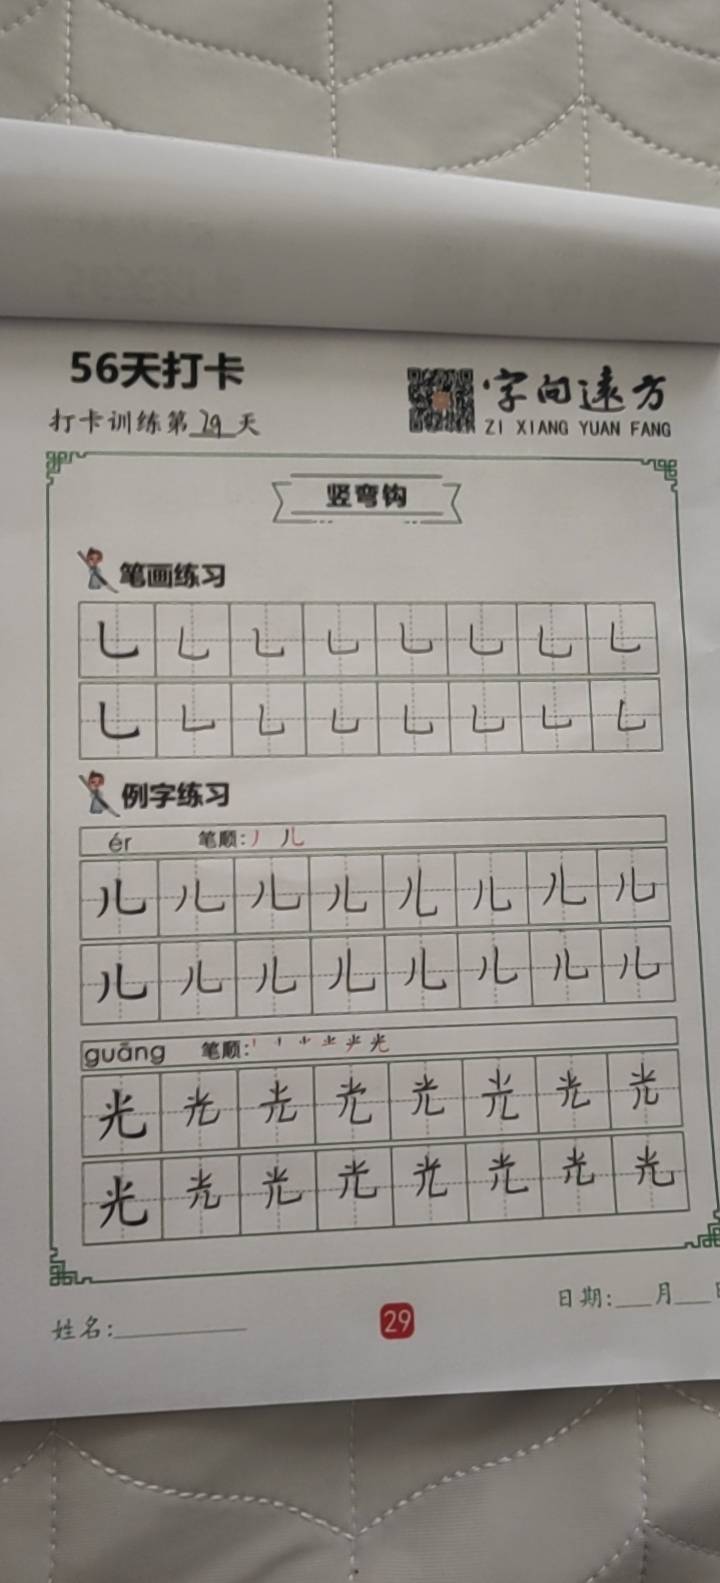 56天打卡
字向远方
ZI XIANG YUAN FANG
打卡训练第29天
竖弯钩
笔画练习
乚乚乚乚乚乚乚乚
乚乚乚乚乚乚乚乚
例字练习
ér 笔顺:丿 儿
儿儿儿儿儿儿儿儿
儿儿儿儿儿儿儿儿
guāng 笔顺:
光光光光光光光光
光光光光光光光光
日期:___月___日
姓名:________
29